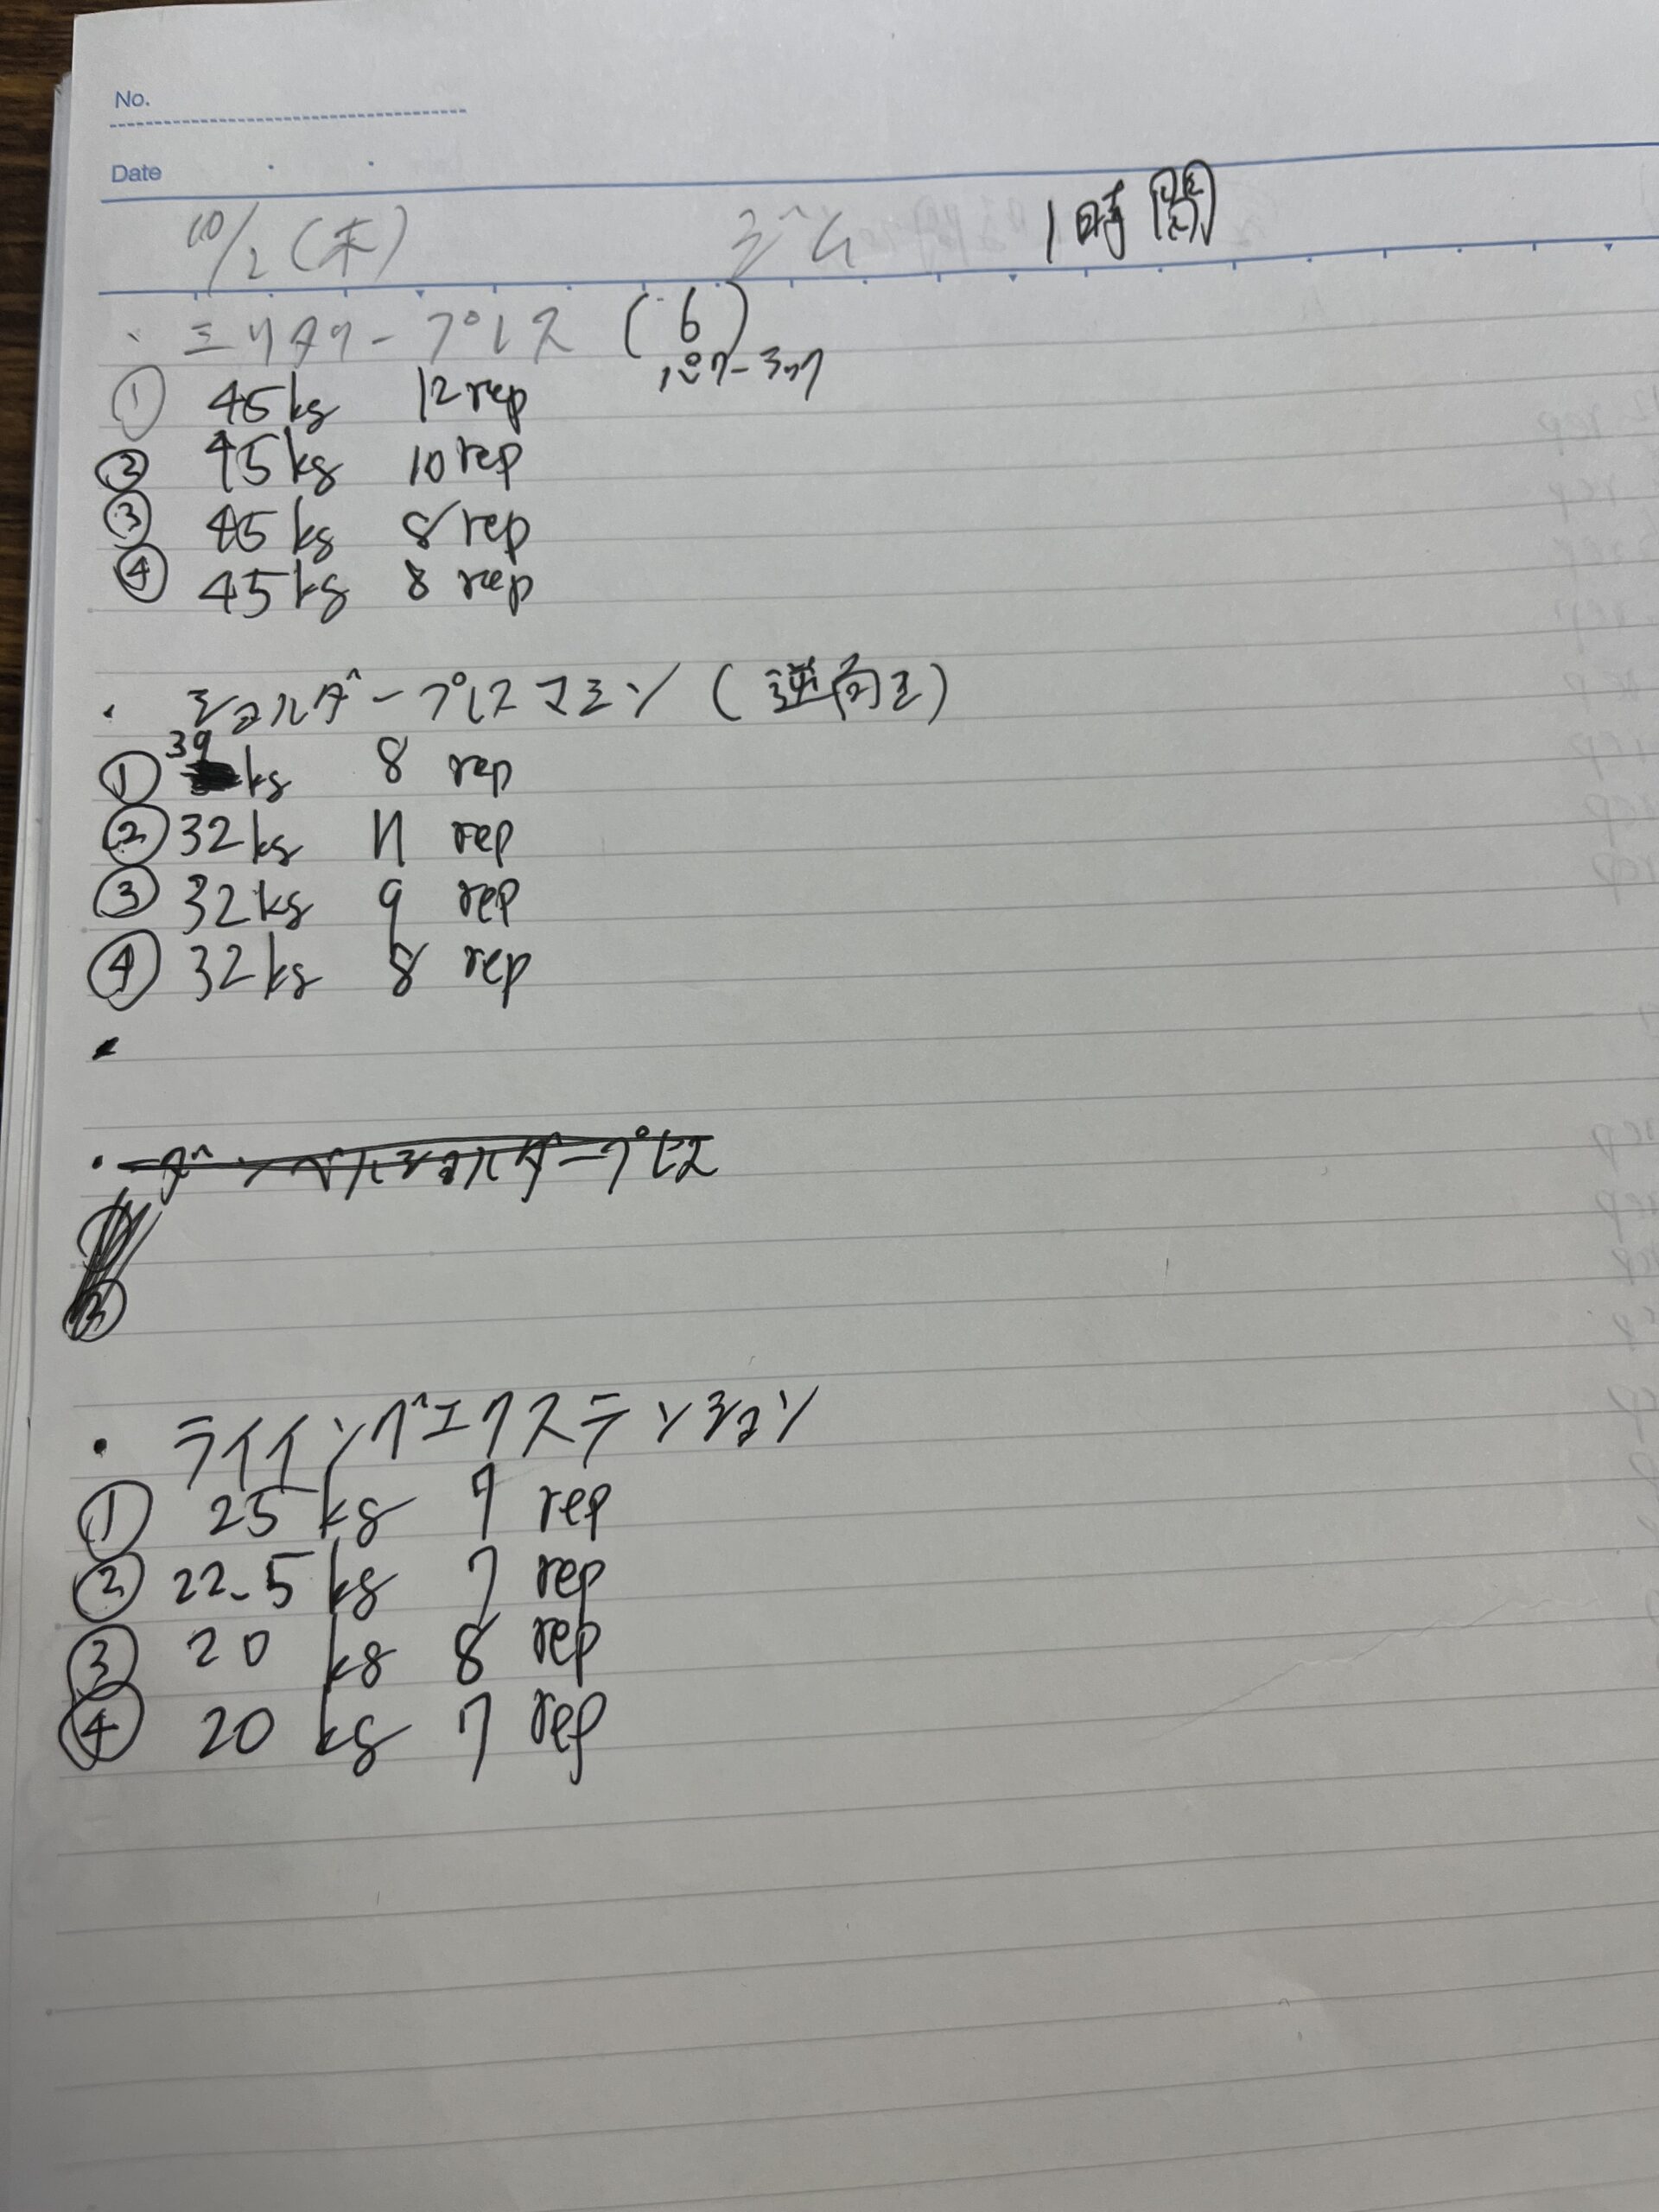 No.
Date
10/2 (木) ジム 1時間
・ミリタリープレス (6)
パワーラック
① 45kg 12rep
② 45kg 10rep
③ 45kg 8rep
④ 45kg 8rep
・ショルダープレスマシン (逆向き)
① 39kg 8 rep
② 32kg 11 rep
③ 32kg 9 rep
④ 32kg 8 rep
・ダンベルショルダープレス
①
②
・ライイングエクステンション
① 25kg 9 rep
② 22.5kg 7 rep
③ 20kg 8 rep
④ 20kg 7 rep